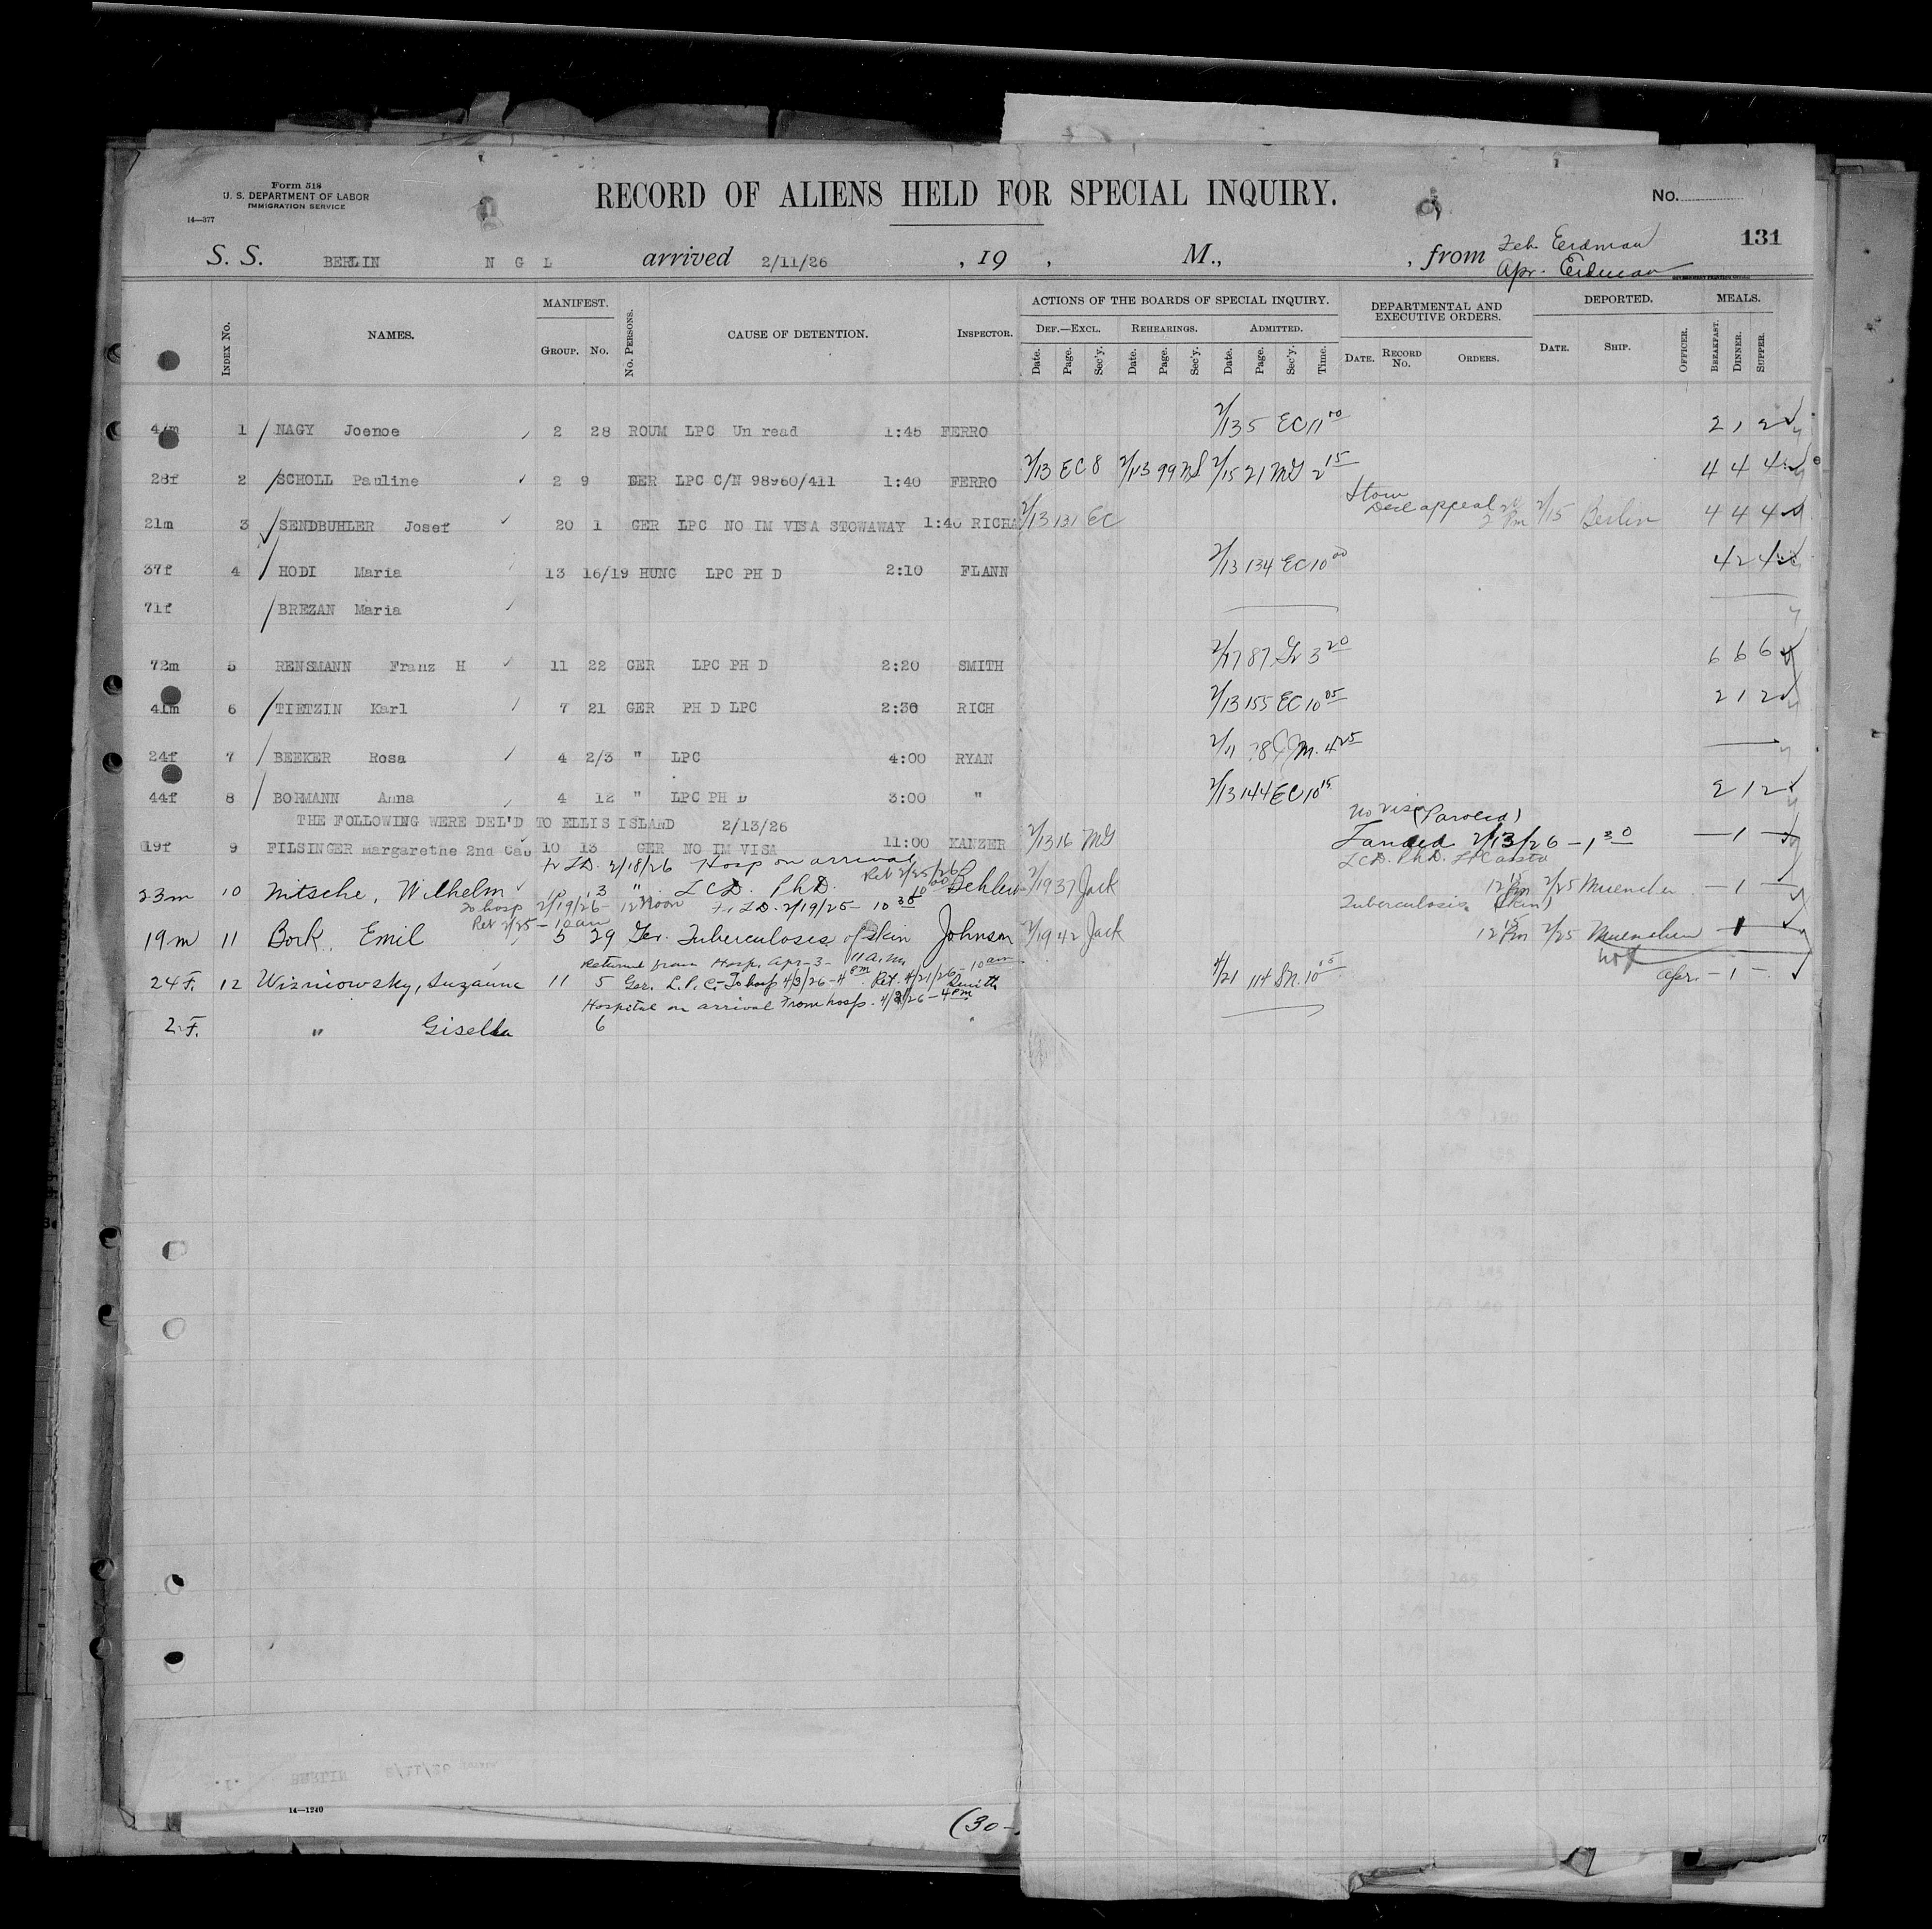 Form 518
U. S. DEPARTMENT OF LABOR
IMMIGRATION SERVICE
14—377
RECORD OF ALIENS HELD FOR SPECIAL INQUIRY.
No.
131
S. S. BERLIN N G L arrived 2/11/26 , 19 , M., , from Feb. Erdman
Apr. Erdman
INDEX No. NAMES. MANIFEST. GROUP. No. No. PERSONS. CAUSE OF DETENTION. INSPECTOR. ACTIONS OF THE BOARDS OF SPECIAL INQUIRY. DEF.—EXCL. Date. Page. Sec'y. REHEARINGS. Date. Page. Sec'y. ADMITTED. Date. Page. Sec'y. Time. DEPARTMENTAL AND EXECUTIVE ORDERS. DATE. RECORD No. ORDERS. DEPORTED. DATE. SHIP. OFFICER. MEALS. BREAKFAST. DINNER. SUPPER.
1 / NAGY Joenoe 2 28 ROUM LPC Un read 1:45 FERRO 2/13 5 EC 11 00 2 1 2
28f 2 / SCHOLL Pauline 2 9 GER LPC C/N 98960/411 1:40 FERRO 2/13 EC 8 2/13 99 2/15 21 MG 2 15 4 4 4
Stow
21m 3 / SENDBUHLER Josef 20 1 GER LPC NO IM VISA STOWAWAY 1:40 RICHA 2/13 131 EC appeal 2 Pm 2/15 Berlin 4 4 4
37f 4 / HODI Maria 13 16/19 HUNG LPC PH D 2:10 FLANN 2/13 134 EC 10 00 4 2 4
71f / BREZAN Maria
72m 5 RENSMANN Franz H 11 22 GER LPC PH D 2:20 SMITH 2/17 87 Gr 3 20 6 6 6
41m 6 / TIETZIN Karl 7 21 GER PH D LPC 2:30 RICH 2/13 155 EC 10 05 2 1 2
24f 7 / BEEKER Rosa 4 2/3 " LPC 4:00 RYAN 2/11 4 25
44f 8 / BORMANN Anna 4 12 " LPC PH D 3:00 " 2/13 144 EC 10 15 2 1 2
THE FOLLOWING WERE DEL'D TO ELLIS ISLAND 2/13/26 No visa (Paroled)
19f 9 FILSINGER Margarethe 2nd Cab 10 13 GER NO IM VISA 11:00 KANZER 2/13 16 MG Landed 2/13/26 – 1 30 — 1 —
2/18/26 Hosp on arrival Ret 2/25/26 LCD. PhD.
23m 10 Nitsche, Wilhelm 10 3 " LCD. PhD. 10 00 2/19 37 Jack 12 15 Pm 2/25 Muenchen — 1 —
To hosp 2/19/26 – 12 Noon 2/19/25 – 10 35 Tuberculosis (skin)
Ret 2/25 – 10 am
19m 11 Bork, Emil 5 29 Ger. Tuberculosis of skin Johnson 2/19 42 Jack 12 15 Pm 2/25 Muenchen 1
Returned from Hosp. Apr - 3 - 11 a.m.
24 F. 12 Wisniowsky, Suzanne 11 5 Ger. L.P.C. To hosp 4/3/26 – 4 pm Ret. 4/21/26 – 10 am Smith 4/21 114 10 Apr. – 1 –
Hospital on arrival From hosp. 4/3/26 – 4 pm
2 F. " Gisella 6
BERLIN 2/11/26
14—1240
(30 -